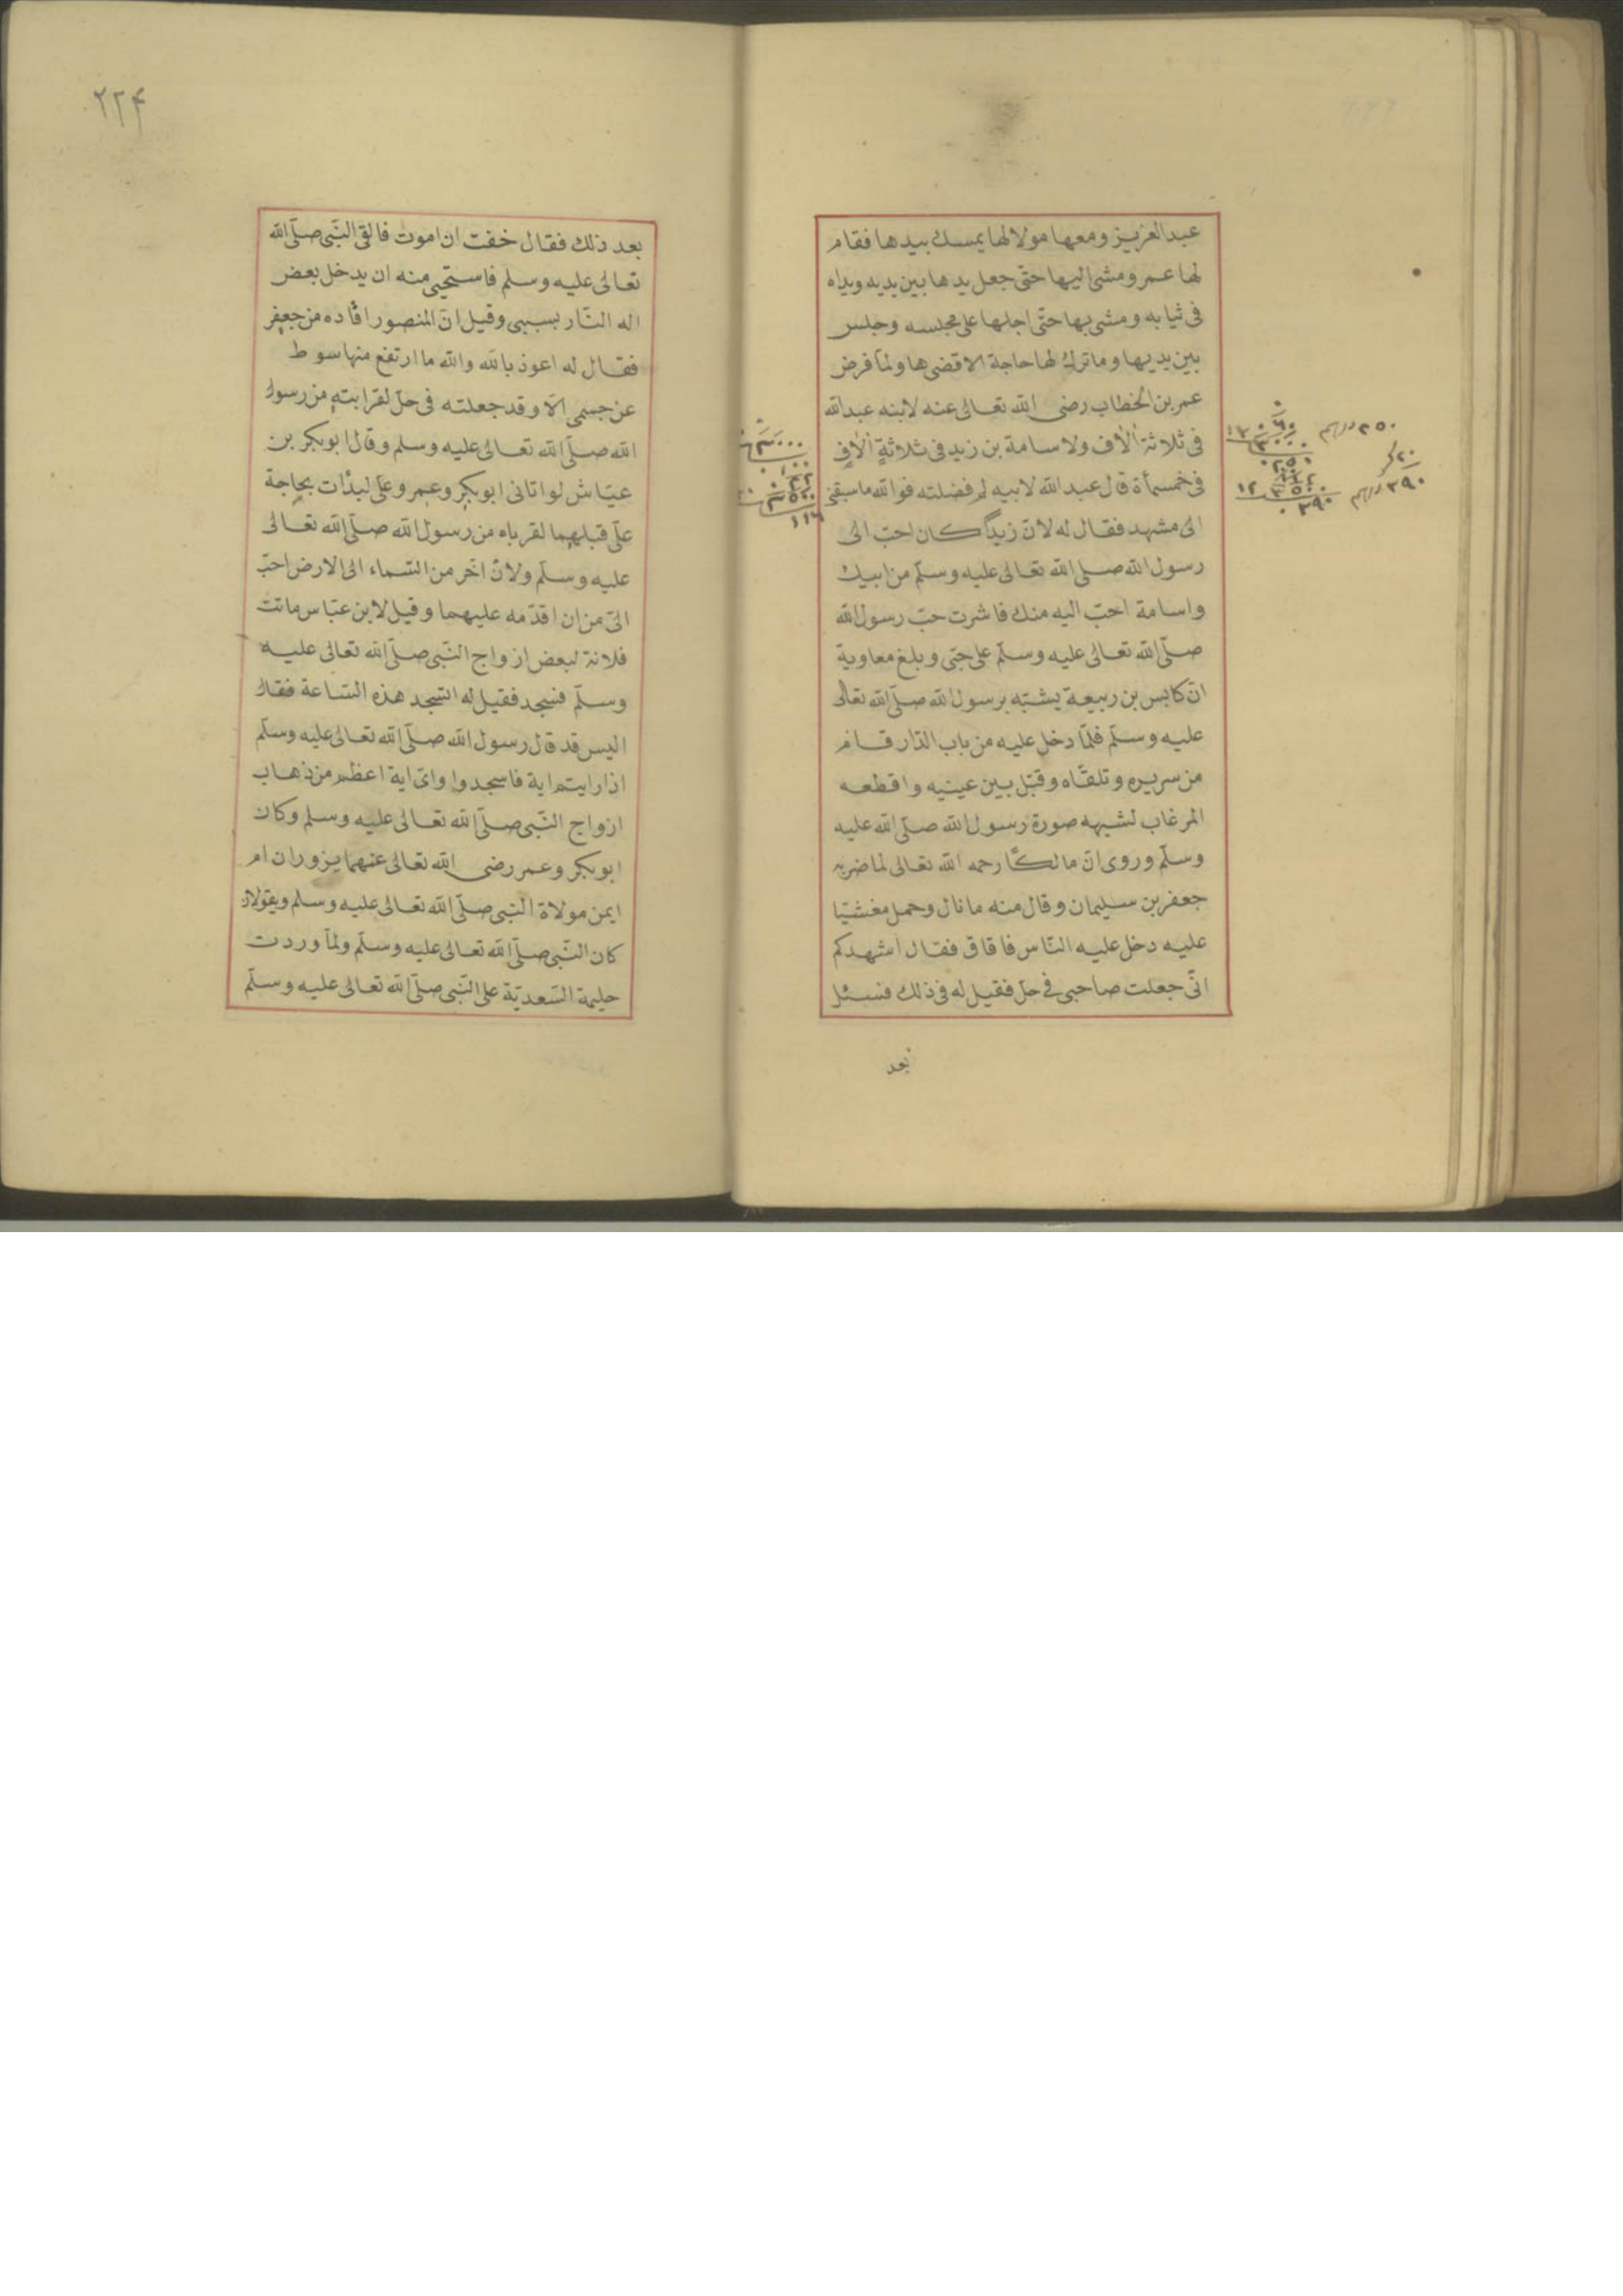 عبد العزيز ومعها مولا لها يمسك بيدها فقام
لها عمر ومشى اليها حتى جعل يدها بين يديه ويداه
فى ثيابه ومشى بها حتى اجلها على مجلسه وجلس
بين يديها وما ترك لها حاجة الا قضىها ولما فرض
عمر بن الخطاب رضى الله تعالى عنه لابنه عبد الله
فى ثلاثة الاف ولاسامة بن زيد فى ثلاثة الاف
فى خمسمأة قال عبد الله لابيه لم فضلته فوالله ما سبقنى
الى مشهد فقال له لان زيدا كان احب الى
رسول الله صلى الله تعالى عليه وسلم من ابيك
واسامة احب اليه منك فاثرت حب رسول الله
صلى الله تعالى عليه وسلم على حبى وبلغ معاوية
ان كابس بن ربيعة يشبه برسول الله صلى الله تعالى
عليه وسلم فلما دخل عليه من باب الدار قام
من سريره وتلقاه وقبل بين عينيه واقطعه
المرغاب لشبهه صورة رسول الله صلى الله عليه
وسلم وروى ان مالكا رحمه الله تعالى لما ضربه
جعفر بن سليمان وقال منه ما نال وحمل مغشيا
عليه دخل عليه الناس فافاق فقال اشهدكم
انى جعلت صاحبى فى حل فقيل له فى ذلك فسئل
بعد
٢٥٠ درهم
٣٩٠ درهم
٢٢٤
بعد ذلك فقال خفت ان اموت فالقى النبى صلى الله
تعالى عليه وسلم فاستحيى منه ان يدخل بعض
اله النار بسببى وقيل ان المنصور اقاده من جعفر
فقال له اعوذ بالله والله ما ارتفع منها سوط
عن جسمى الا وقد جعلته فى حل لقرابته من رسول
الله صلى الله تعالى عليه وسلم وقال ابو بكر بن
عياش لو اتانى ابو بكر وعمر وعلى لبدأت بحاجة
على قبلهما لقرباه من رسول الله صلى الله تعالى
عليه وسلم ولان اخر من السماء الى الارض احب
الى من ان اقدمه عليهما وقيل لابن عباس ماتت
فلانة لبعض ازواج النبى صلى الله تعالى عليه
وسلم فسجد فقيل له اتسجد هذه الساعة فقال
اليس قد قال رسول الله صلى الله تعالى عليه وسلم
اذا رايتم اية فاسجدوا واى اية اعظم من ذهاب
ازواج النبى صلى الله تعالى عليه وسلم وكان
ابو بكر وعمر رضى الله تعالى عنهما يزوران ام
ايمن مولاة النبى صلى الله تعالى عليه وسلم ويقولان
كان النبى صلى الله تعالى عليه وسلم ولما وردت
حليمة السعدية على النبى صلى الله تعالى عليه وسلم